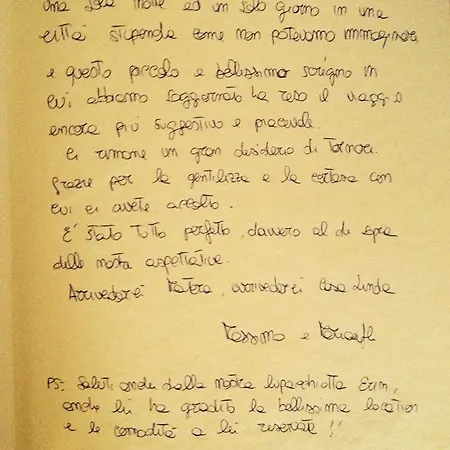 una sola notte ed un solo giorno in una
città stupenda come non potevamo immaginare
e questo piccolo e bellissimo scrigno in
cui abbiamo soggiornato ha reso il viaggio
ancora più suggestivo e piacevole.
Ci rimane un gran desiderio di tornarci.
Grazie per la gentilezza e la cortesia con
cui ci avete accolto.
E' stato tutto perfetto, davvero al di sopra
delle nostre aspettative.
Arrivederci Matera, arrivederci Casa Linda
Massimo e
PS: Saluti anche dalla nostra lupacchiotta Erin,
anche lei ha gradito la bellissima location
e le comodità a lei riservate!!